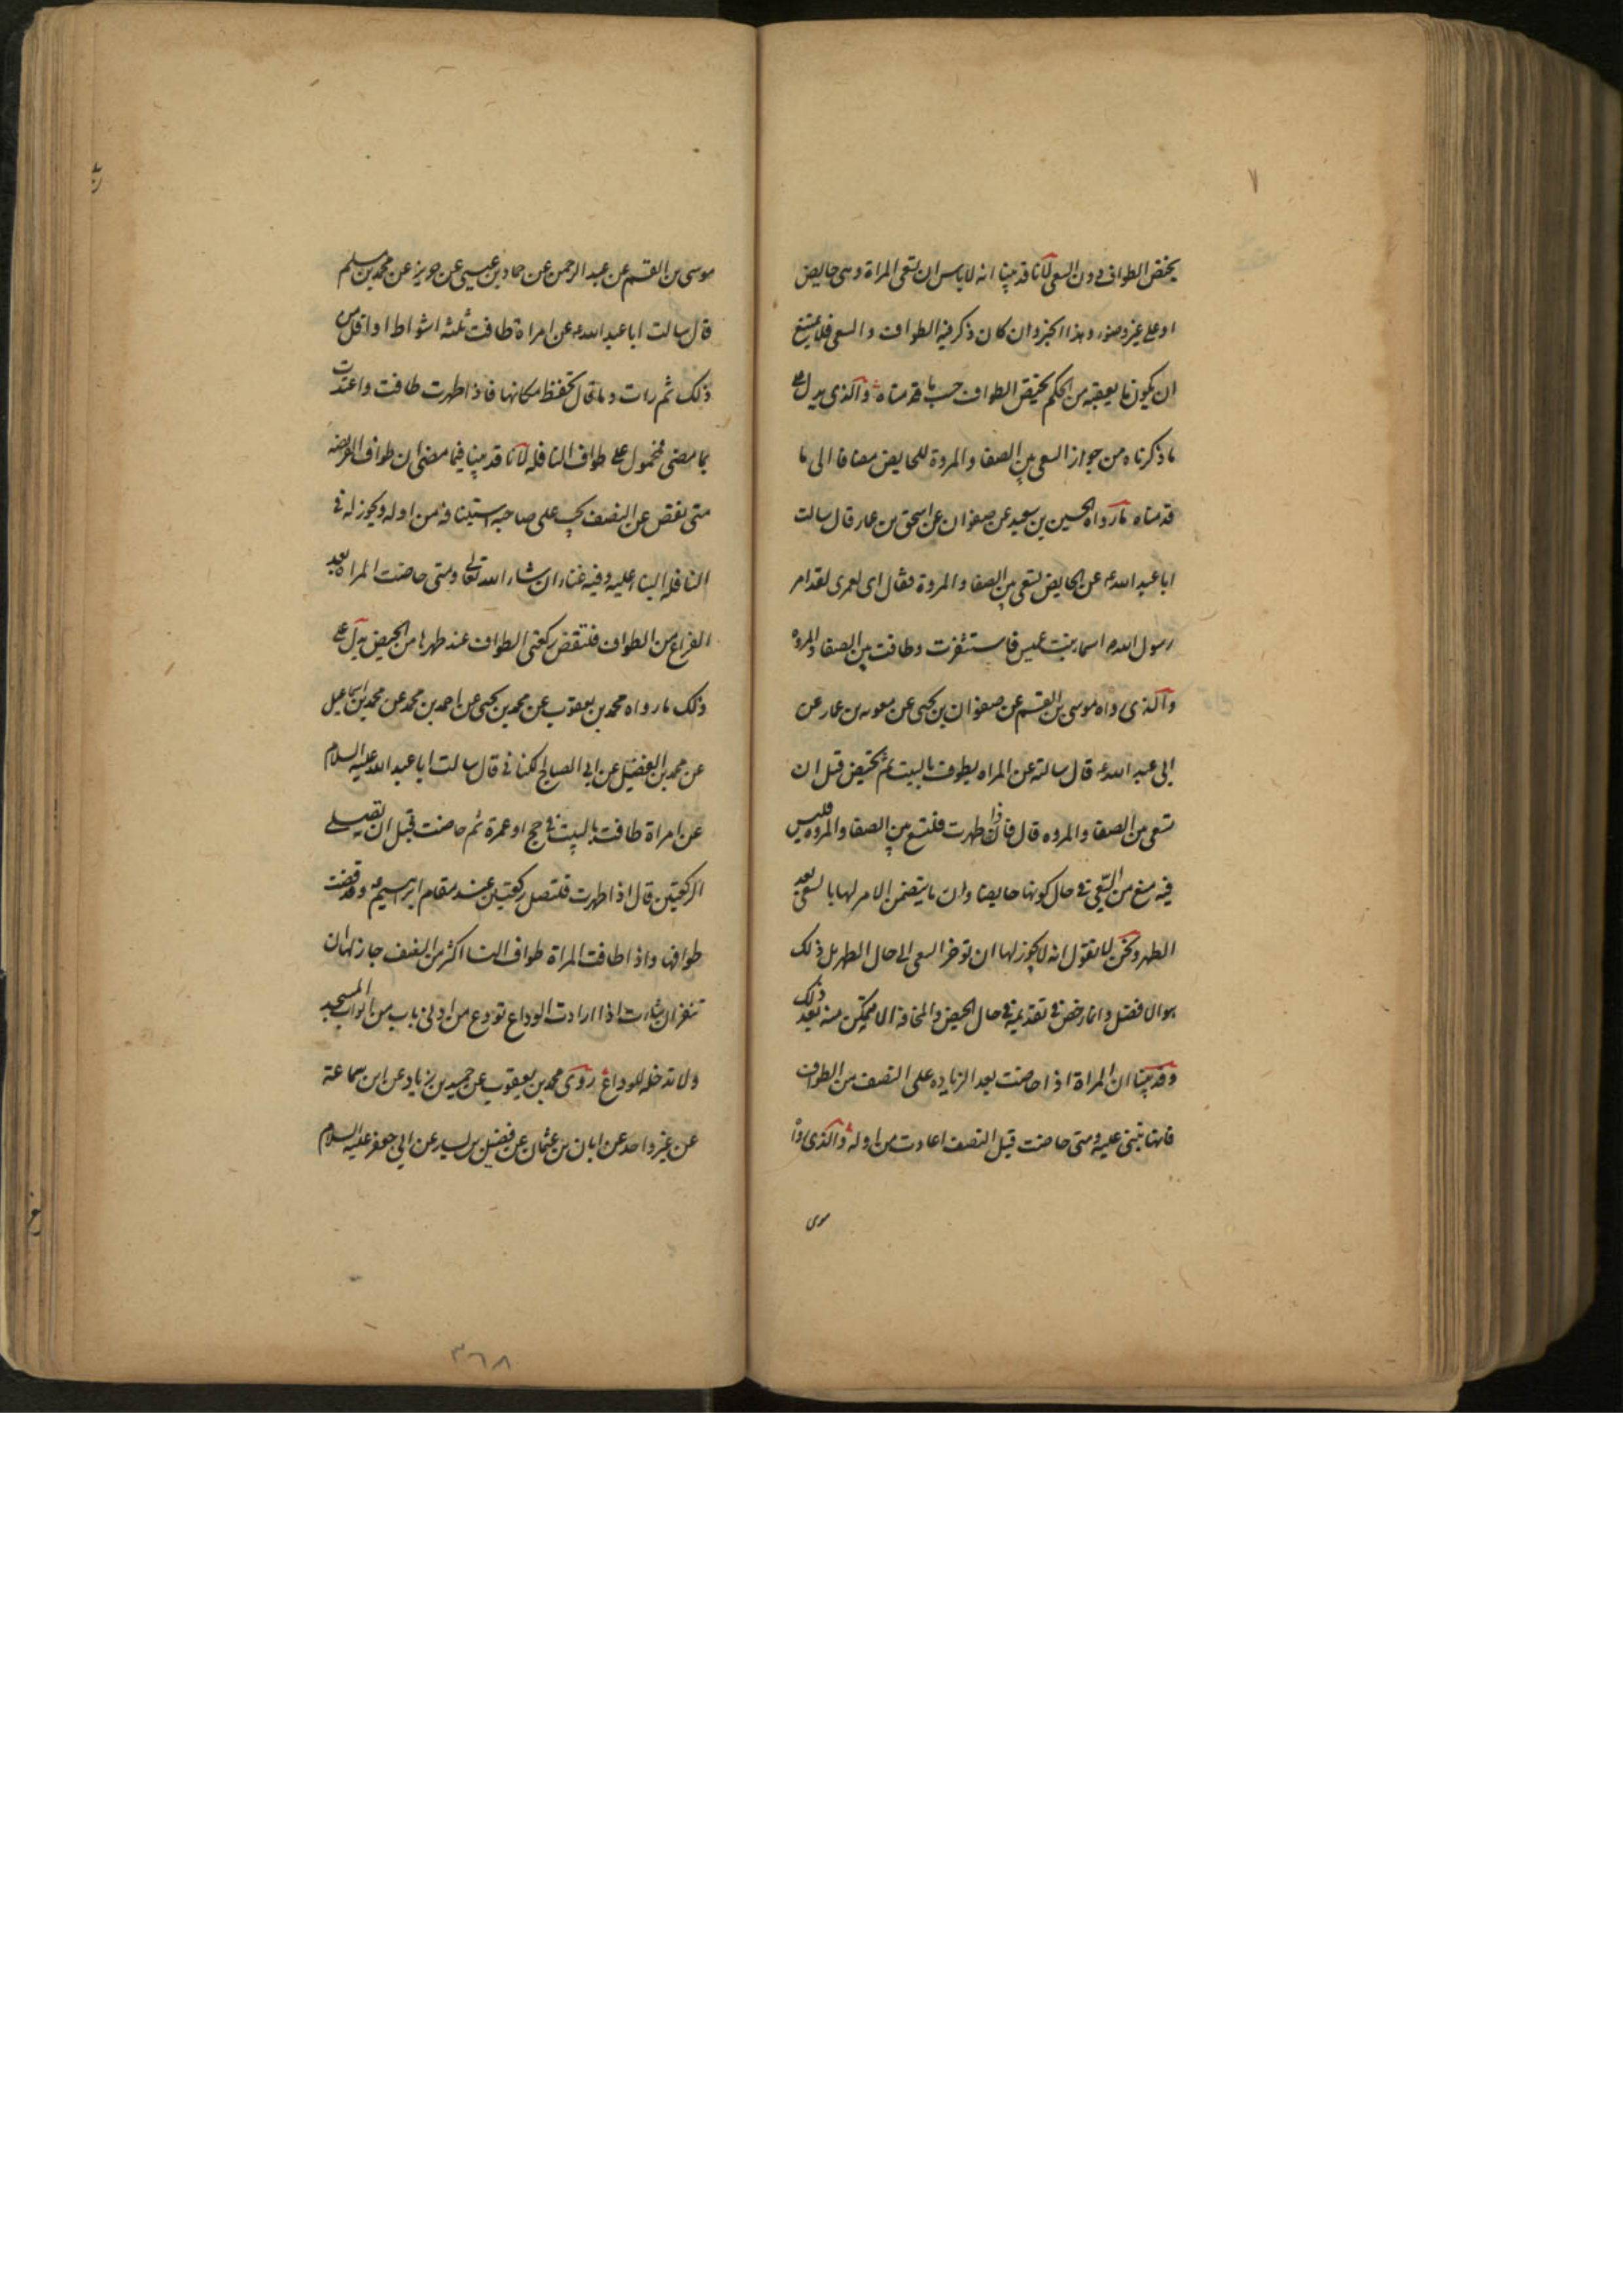 يختص الطواف دون السعى لانا قد بينا انه لا باس ان تسعى المراة وهى حايض
او على غير وضوء وهذا الخبر وان كان ذكر فيه الطواف والسعى فلا يمتنع
ان يكون ما يعقبه من الحكم يختص الطواف حسب ما قدمناه والذى يدل على
ما ذكرناه من جواز السعى بين الصفا والمروة للحايض مضافا الى ما
قدمناه ما رواه الحسين بن سعيد عن صفوان عن اسحق بن عمار قال سالت
ابا عبد الله ع عن الحايض تسعى بين الصفا والمروة فقال اى لعمرى لقد امر
رسول الله ص اسما بنت عميس فاستثفرت وطافت بين الصفا والمروه
والذى رواه موسى بن القسم عن صفوان بن يحيى عن معويه بن عمار عن
ابى عبد الله ع قال سالته عن المراه يطوف بالبيت ثم تحيض قبل ان
تسعى بين الصفا والمروه قال فاذا طهرت فلتسع بين الصفا والمروه فليس
فيه منع من السعى فى حال كونها حايضا وان ما يتضمن الامر لها بالسعى بعد
الطهر ونحن لا نقول انه لا يجوز لها ان توخر السعى الى حال الطهر بل ذلك
هو الافضل وانما رخص فى تقديمه فى حال الحيض والمخافة الا يتمكن منه بعد ذلك
وقد بينا ان المراة اذا حاضت بعد الزياده على النصف من الطواف
فانها تبنى عليه ومتى حاضت قبل النصف اعادت من اوله والذى رواه
موسى
موسى بن القسم عن عبد الرحمن عن حماد بن عيسى عن حريز عن محمد بن مسلم
قال سالت ابا عبد الله ع عن امراة طافت ثلثة اشواط او اقل من
ذلك ثم رات دما قال تحفظ مكانها فاذا طهرت طافت واعتدت
بما مضى فمحمول على طواف النافله لانا قد بينا فيما مضى ان طواف الفريضه
متى نقص عن النصف يجب على صاحبه استينافه من اوله ويجوز له فى
النافله البنا عليه وفيه غناء ان شاء الله تعالى ومتى حاضت المراه بعد
الفراغ من الطواف فلتقض ركعتى الطواف عند طهرها من الحيض يدل على
ذلك ما رواه محمد بن يعقوب عن محمد بن يحيى عن احمد بن محمد عن محمد بن اسماعيل
عن محمد بن الفضيل عن ابى الصباح الكنانى قال سالت ابا عبد الله عليه السلام
عن امراة طافت بالبيت فى حج او عمرة ثم حاضت قبل ان تصلى
الركعتين قال اذا طهرت فلتصل ركعتين عند مقام ابرهيم ع وقد قضت
طوافها واذا طافت المراة طواف النسا اكثر من النصف جاز لها ان
تنفر ان شاءت اذا ارادت الوداع تودع من ادنى باب من ابواب المسجد
ولا تدخله للوداع روى محمد بن يعقوب عن حميد بن زياد عن ابن سماعة
عن غير واحد عن ابان بن عثمان عن فضيل بن يسار عن ابى جعفر عليه السلام
٣٦٨